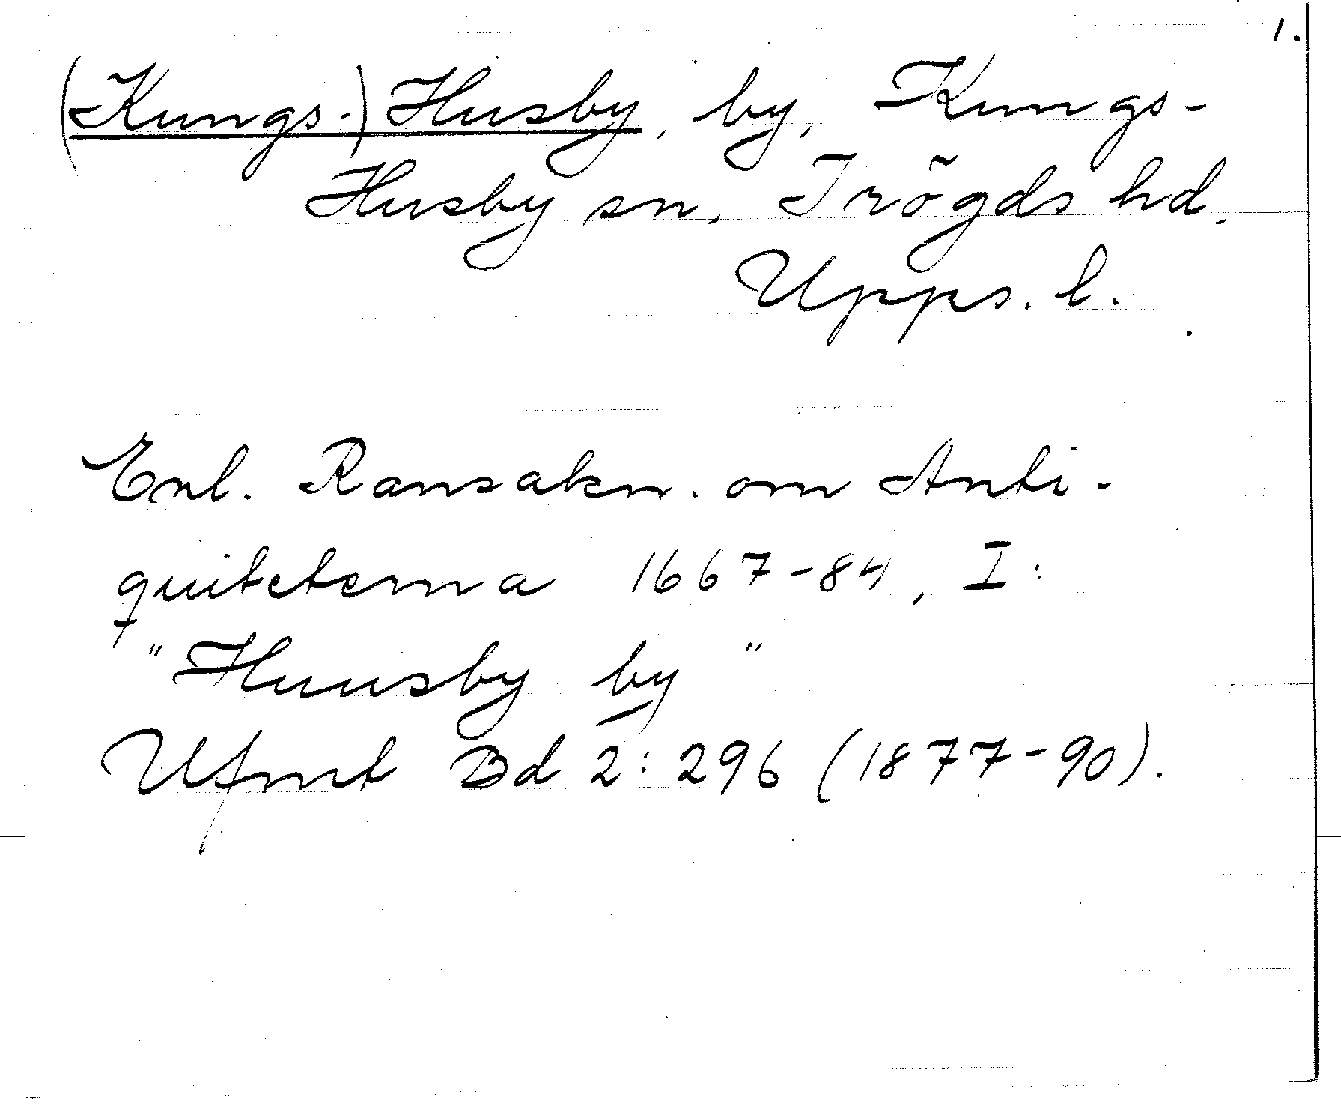 1.
(Kungs-)Husby, by, Kungs-
Husby sn. Trögds hd.
Upps. l.
Enl. Ransakn. om Anti-
quiteterna 1667-84, I:
"Huusby by"
Ufmt Bd 2:296 (1877-90).